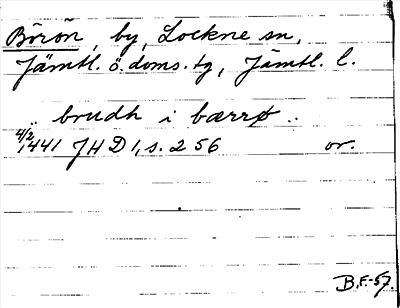 Börön, by, Lockne sn,
Jämtl. ö. doms. tg, Jämtl. l.
.. brudh i bærrø ..
4/2 1441 JHD 1, s. 256 or.
B.F.-57.